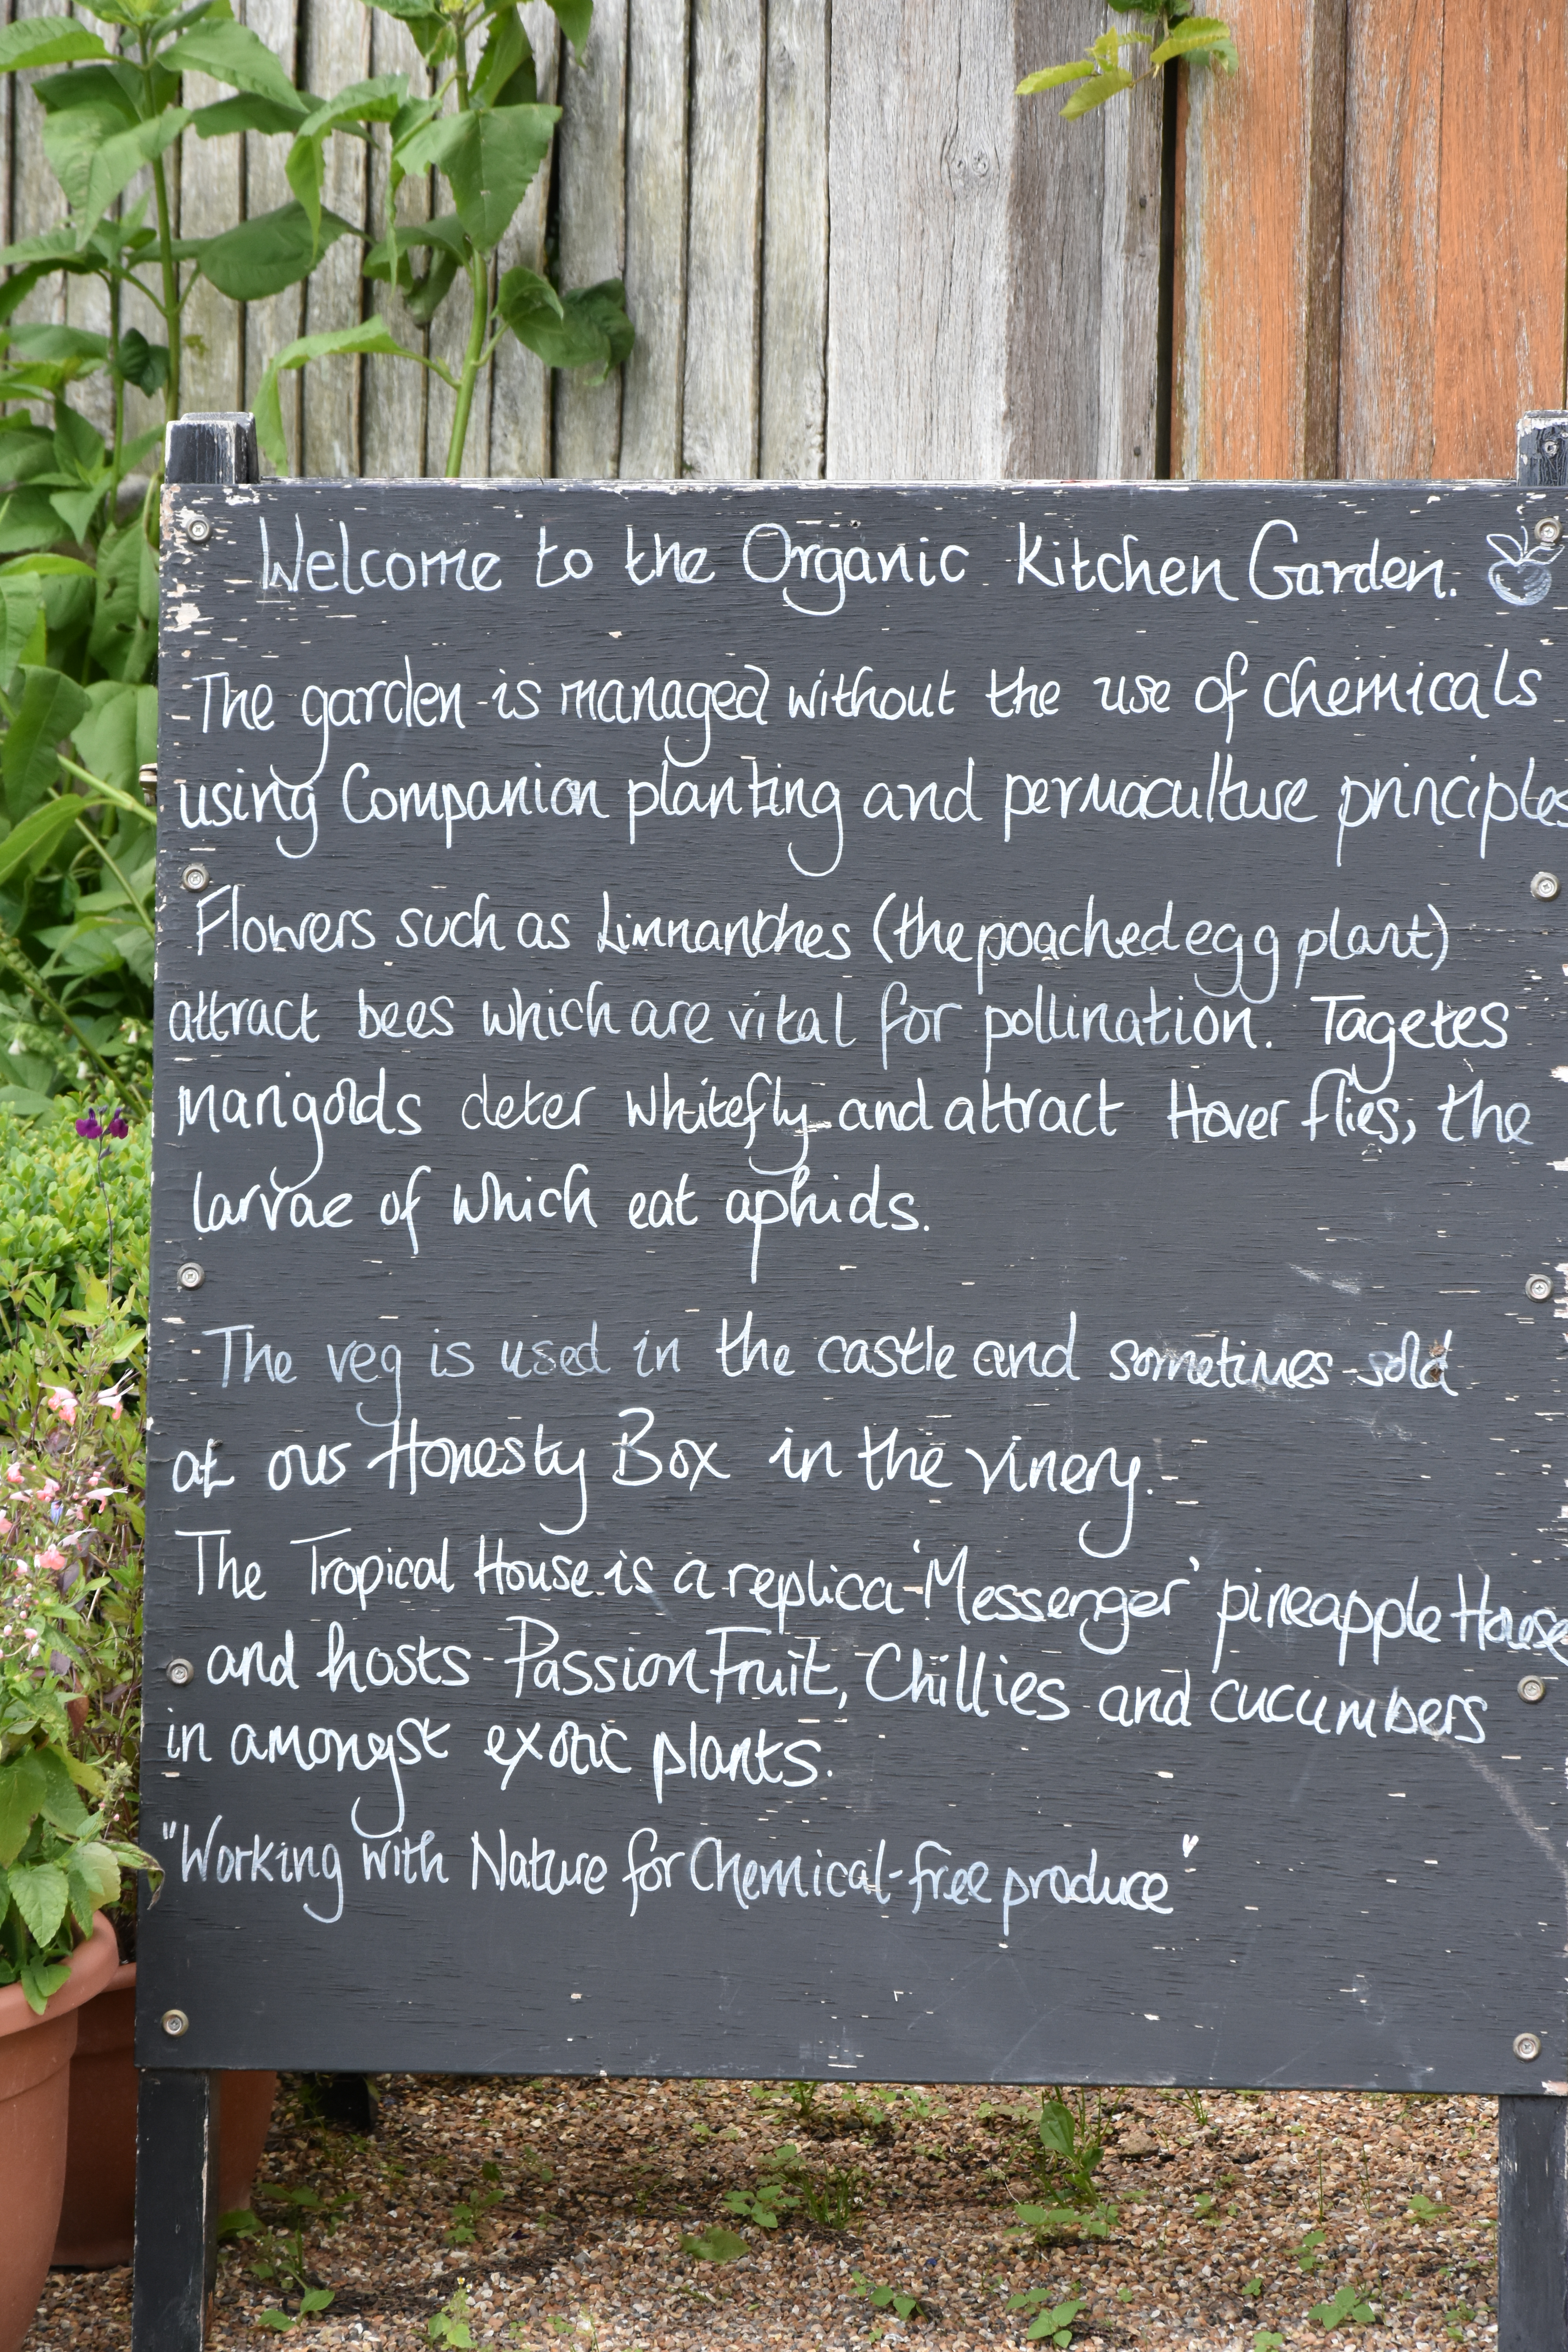 Welcome to the Organic Kitchen Garden.
The garden is managed without the use of chemicals
using Companion planting and permaculture principles
Flowers such as Limnanthes (the poached egg plant)
attract bees which are vital for pollination. Tagetes
marigolds deter whitefly and attract Hover flies, the
larvae of which eat aphids.
The veg is used in the castle and sometimes sold
at our Honesty Box in the vinery.
The Tropical House is a replica 'Messenger' pineapple House
and hosts Passion Fruit, Chillies and cucumbers
in amongst exotic plants.
"Working with Nature for Chemical-free produce"